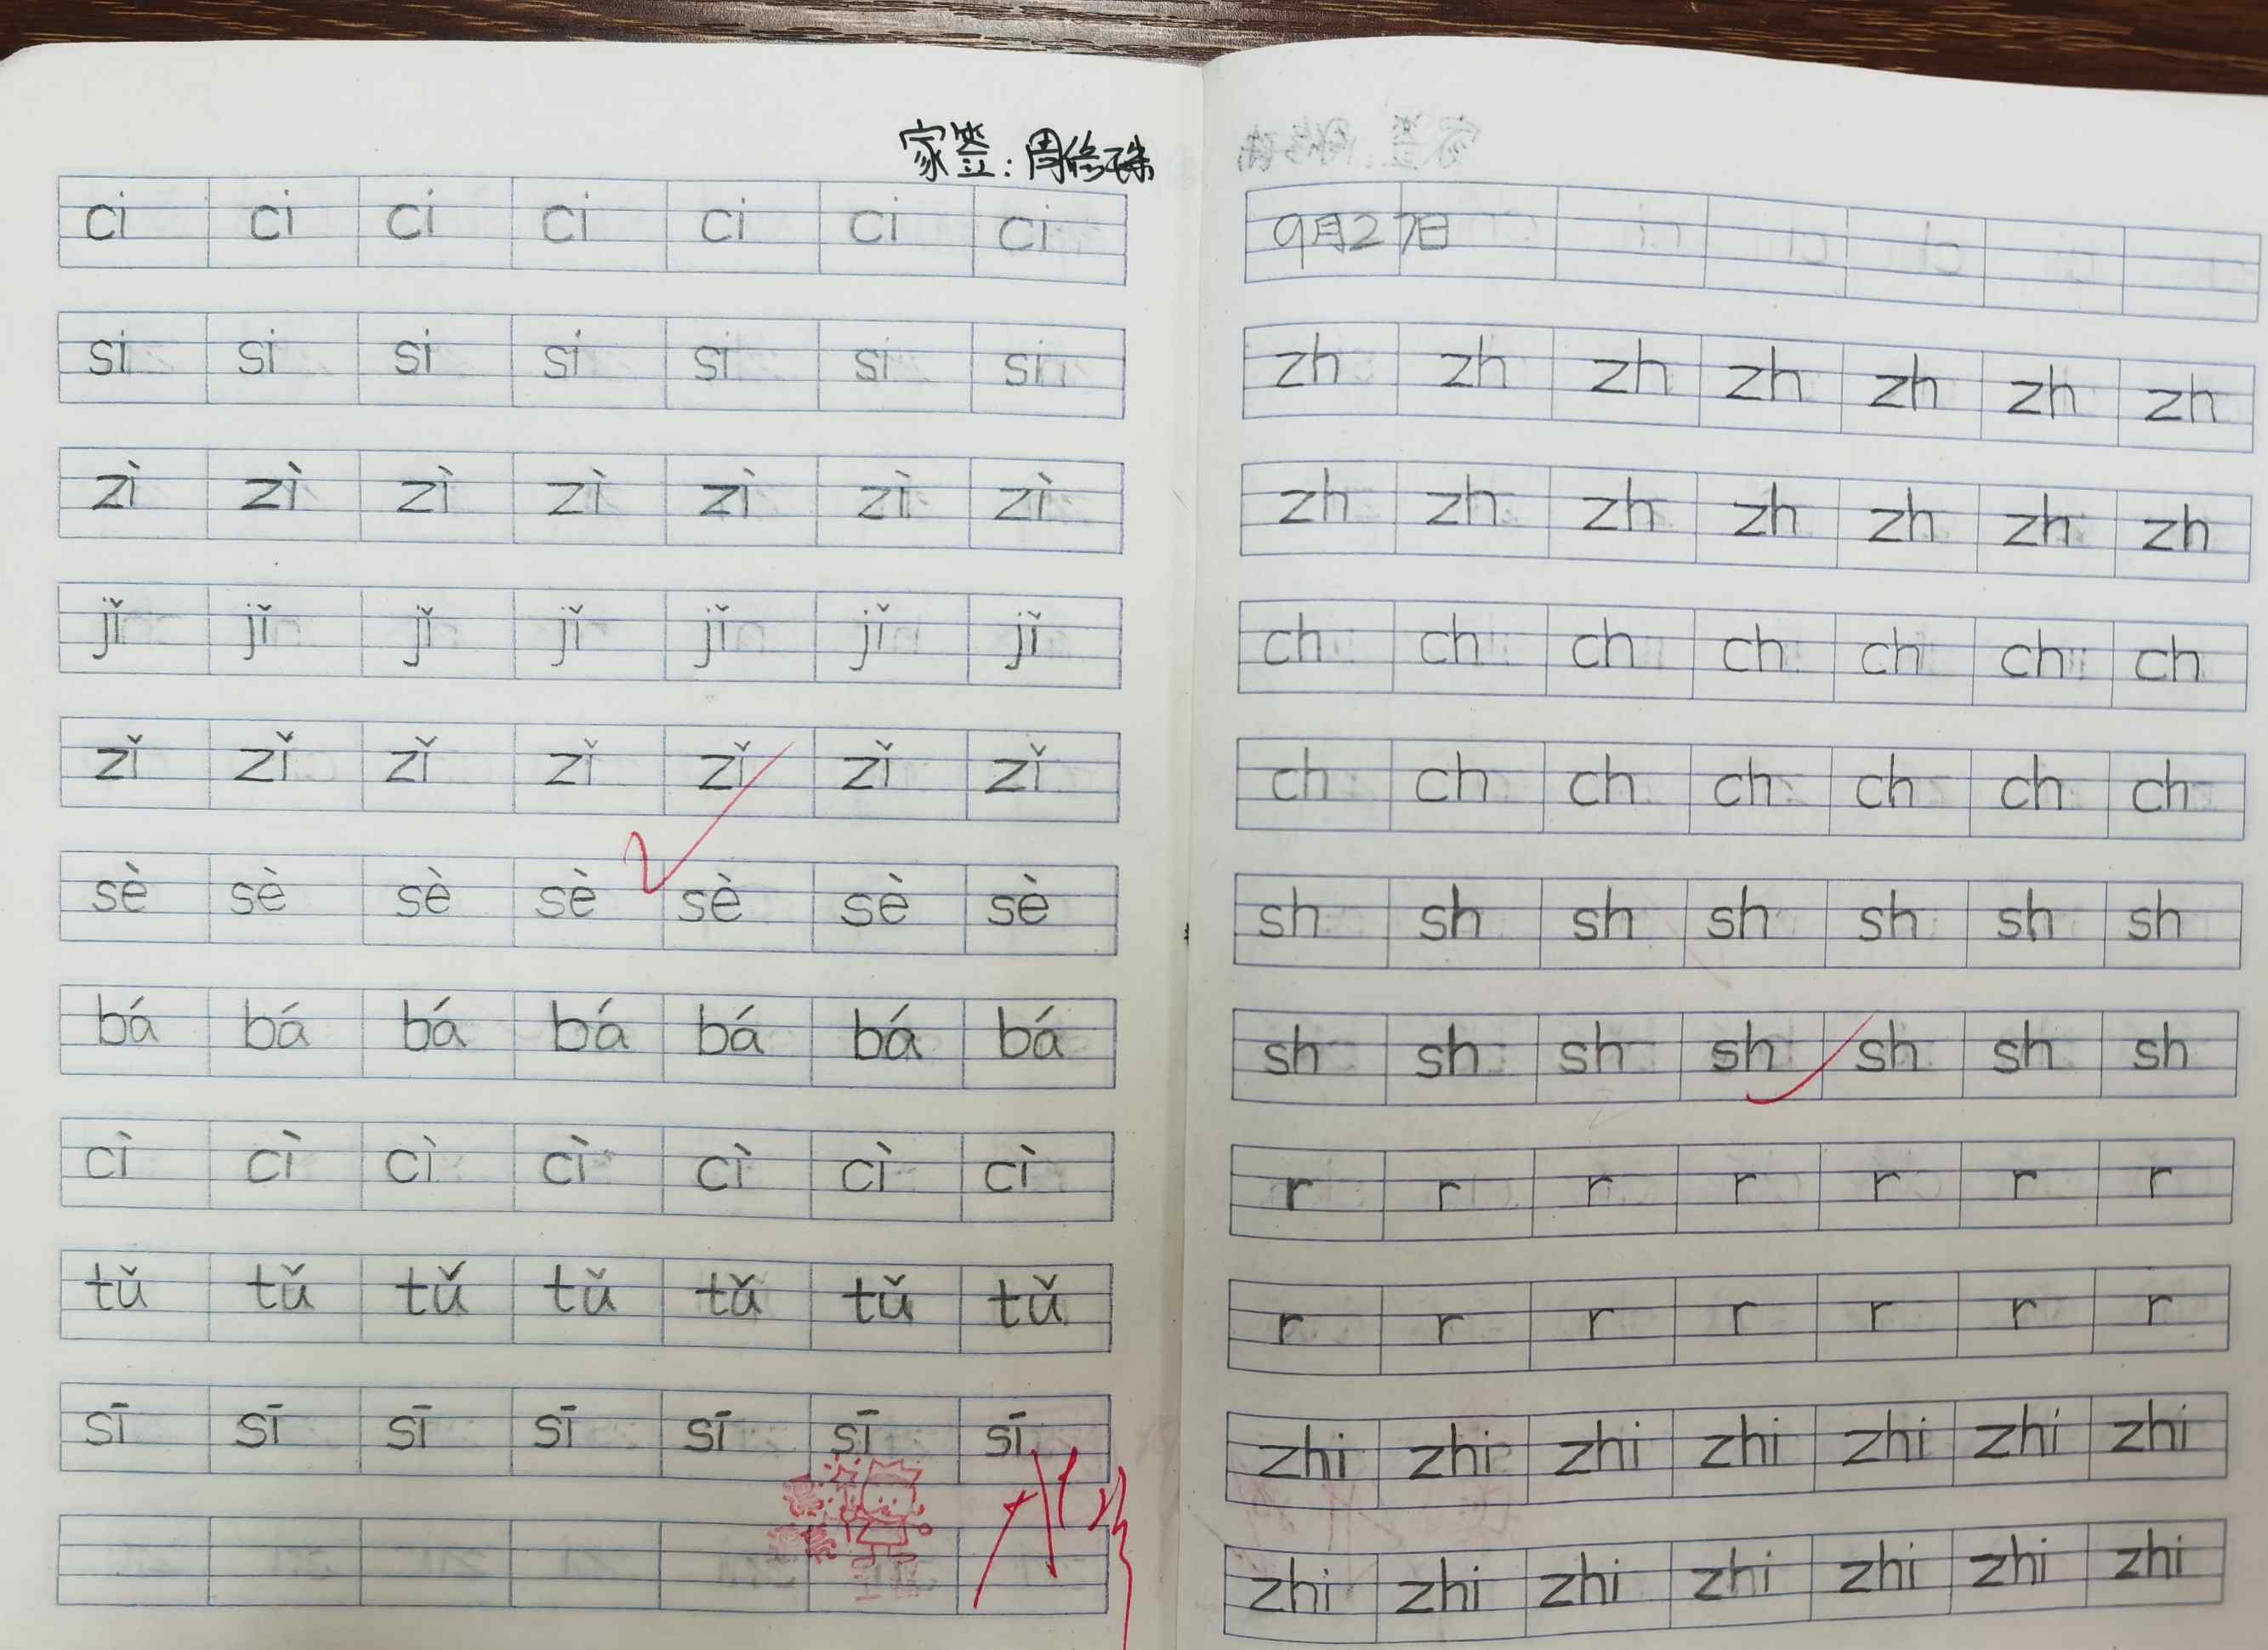 家签:周修珠
ci ci ci ci ci ci ci
si si si si si si si
zì zì zì zì zì zì zì
jǐ jǐ jǐ jǐ jǐ jǐ jǐ
zǐ zǐ zǐ zǐ zǐ zǐ zǐ
sè sè sè sè sè sè sè
bá bá bá bá bá bá bá
cì cì cì cì cì cì cì
tǔ tǔ tǔ tǔ tǔ tǔ tǔ
sī sī sī sī sī sī sī
9月27日
zh zh zh zh zh zh zh
zh zh zh zh zh zh zh
ch ch ch ch ch ch ch
ch ch ch ch ch ch ch
sh sh sh sh sh sh sh
sh sh sh sh sh sh sh
r r r r r r r
r r r r r r r
zhi zhi zhi zhi zhi zhi zhi
zhi zhi zhi zhi zhi zhi zhi